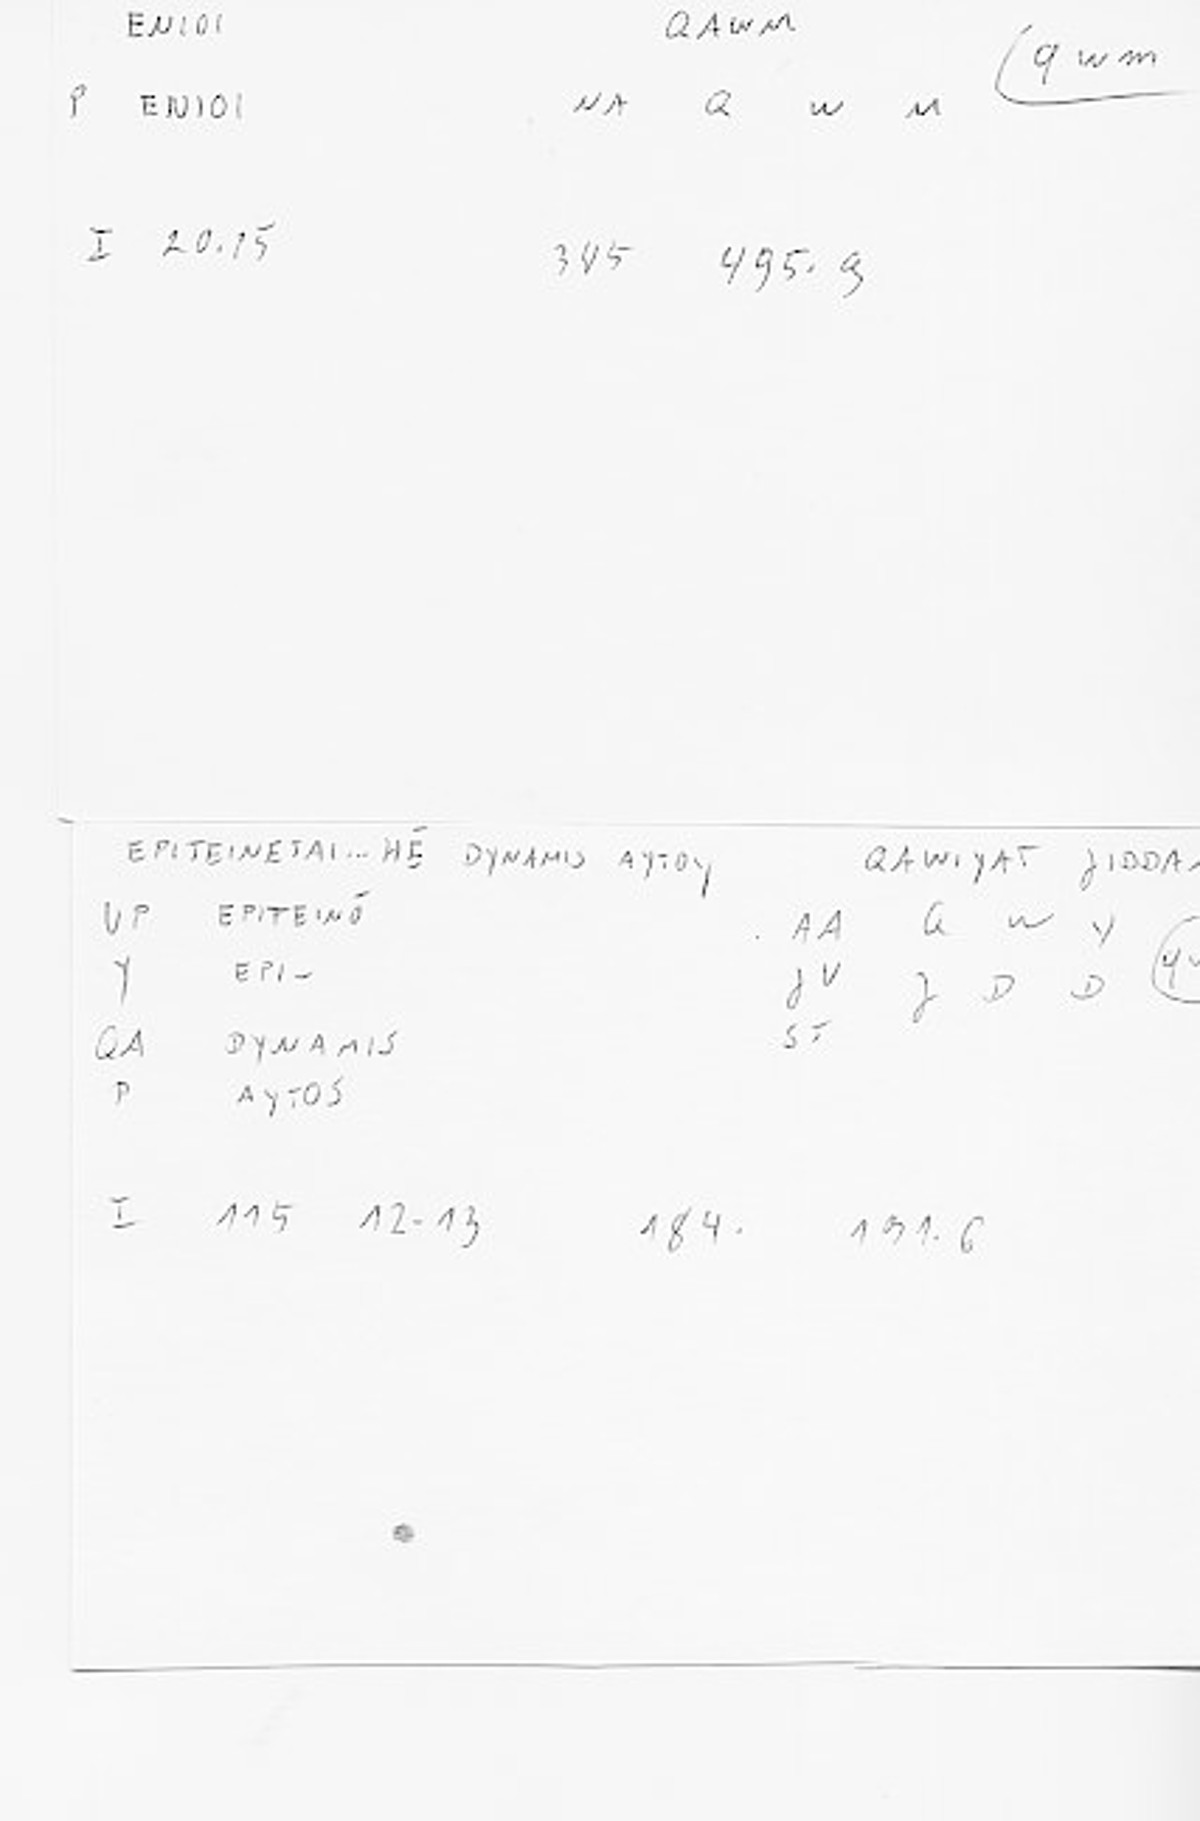 ENIOI QAWM
(qwm
P ENIOI NA Q W M
I 20.15 345 495.9
EPITEINETAI... HĒ DYNAMIS AYTOY QAWIYAT JIDDAN
VP EPITEINŌ . AA Q W Y
Y EPI- JV J D D
QA DYNAMIS ST
P AYTOS
I 115 12-13 184. 191.6